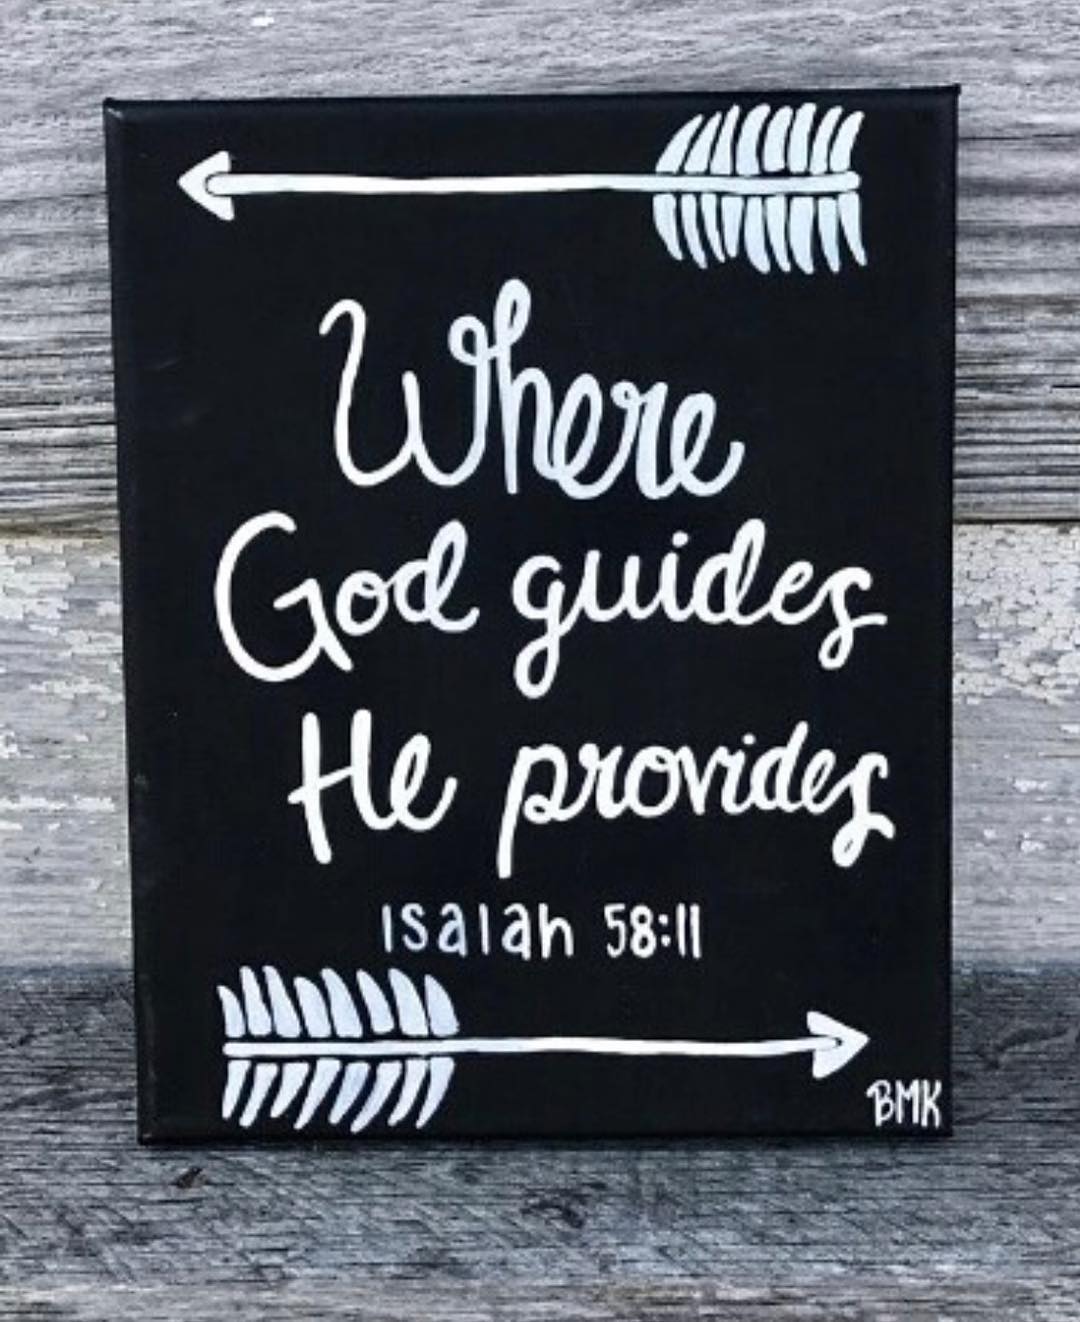 Where
God guides
He provides
Isaiah 58:11
BMK